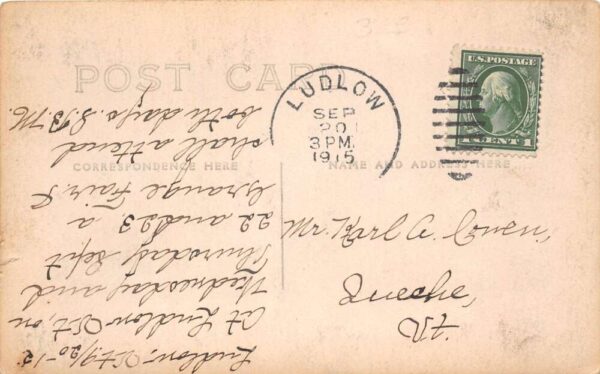 POST CARD
CORRESPONDENCE HERE
NAME AND ADDRESS HERE
U.S. POSTAGE
1 CENT 1
LUDLOW
SEP
20
3 PM.
1915
Mr. Karl A.
Queche,
Vt
Ludlow, Vt 9/20-15
At Ludlow Vt, on
Wednesday and
Thursday Sept
22 and 23. a
Grange Fair. I
shall attend
both days. S. B. M.